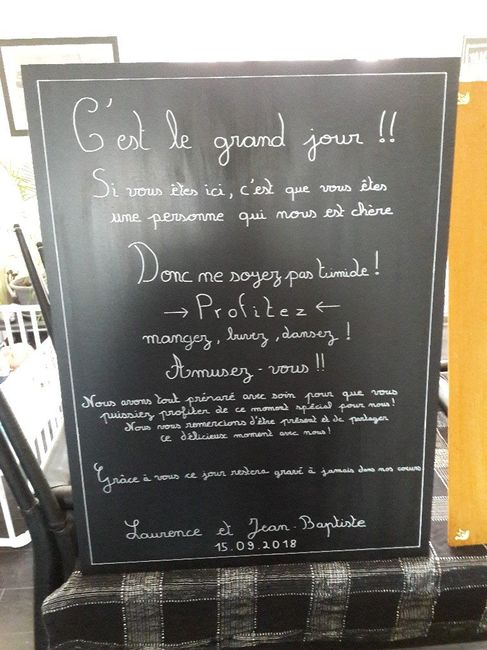 C'est le grand jour !!
Si vous êtes ici, c'est que vous êtes
une personne qui nous est chère
Donc ne soyez pas timide !
→ Profitez ←
mangez, buvez, dansez !
Amusez-vous !!
Nous avons tout préparé avec soin pour que vous
puissiez profiter de ce moment spécial pour nous !
Nous vous remercions d'être présent et de partager
ce délicieux moment avec nous !
Grâce à vous ce jour restera gravé à jamais dans nos coeurs
Laurence et Jean-Baptiste
15.09.2018